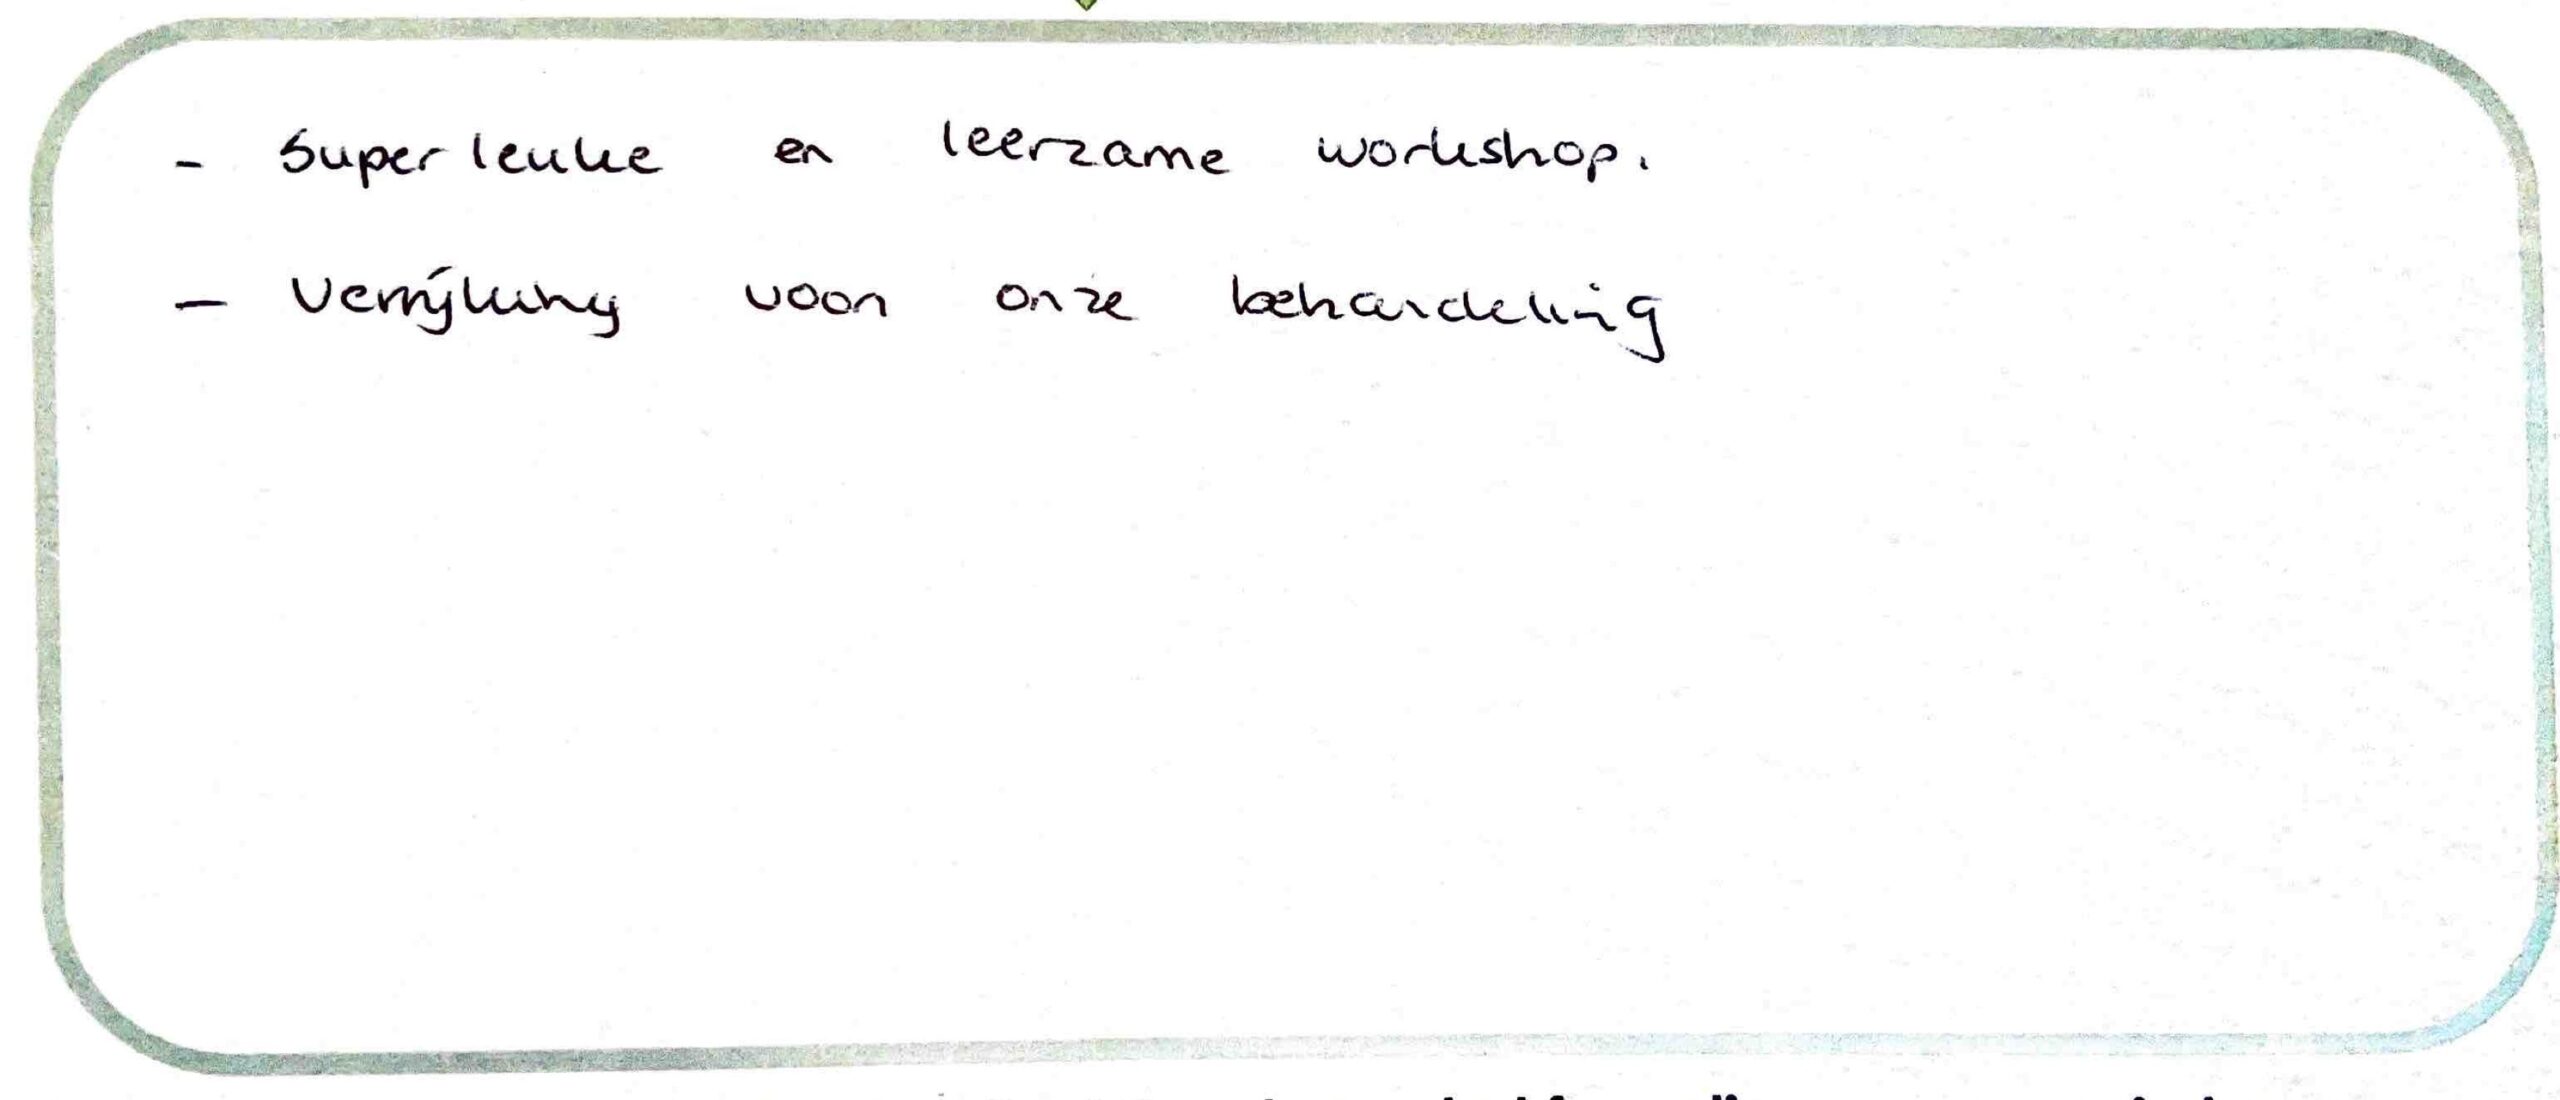 - Superleuke en leerzame workshop.
- Verrijking voor onze behandeling